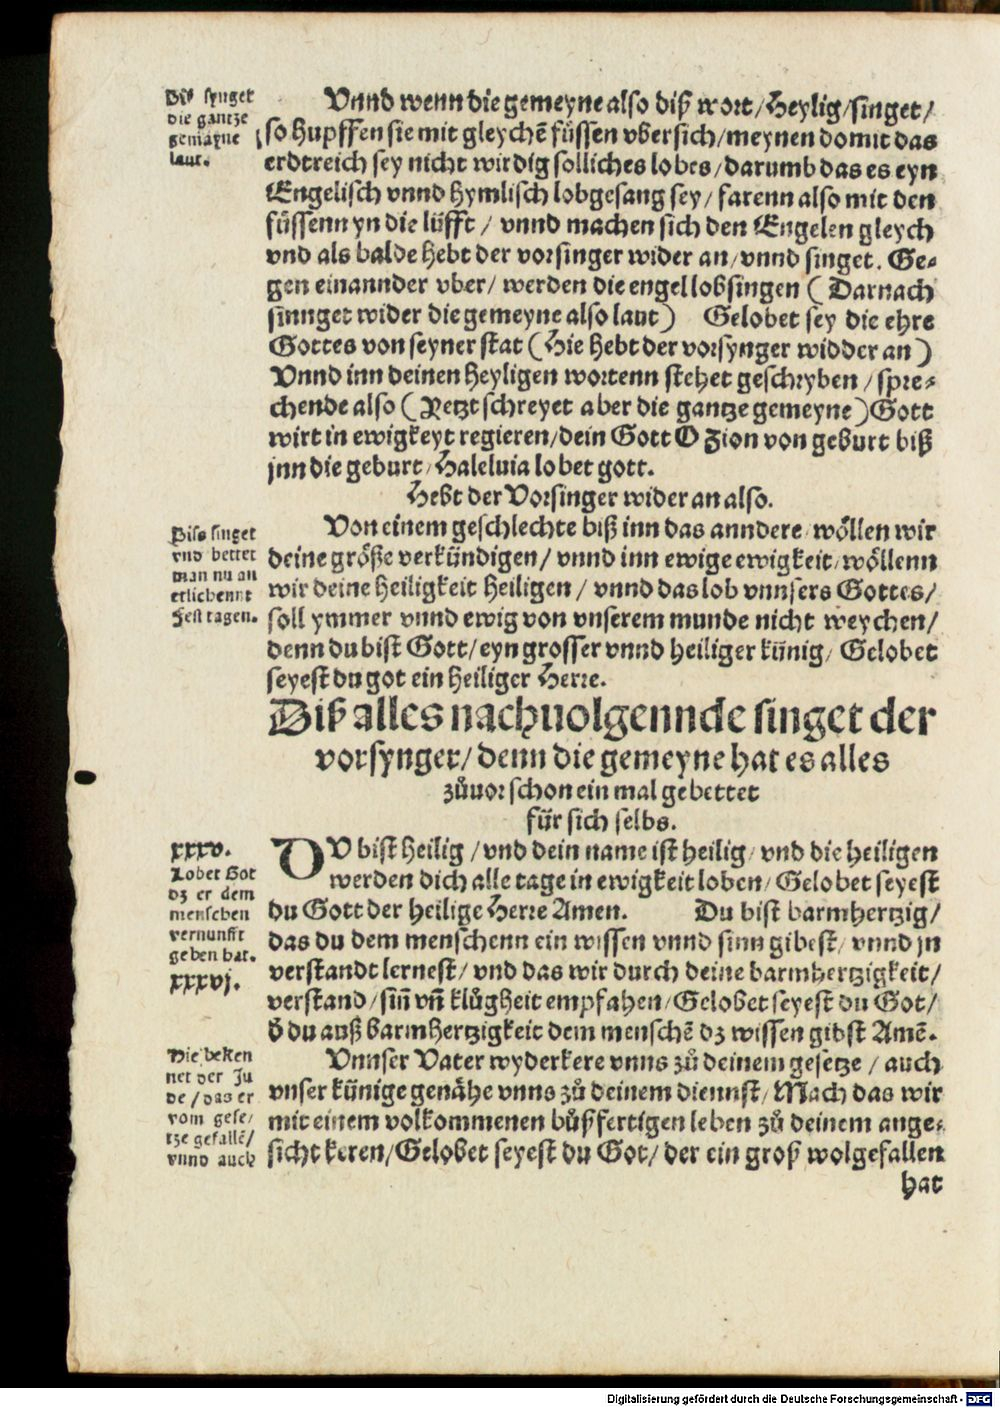 Diß synget
die gantze
gemayne
laut.
Vnnd wenn die gemeyne also diß wort/ Heylig/ singet/
so hupffen sie mit gleychē füssen vbersich/ meynen domit das
erdtreich sey nicht wirdig solliches lobes/ darumb das es eyn
Engelisch vnnd hymlisch lobgesang sey/ farenn also mit den
füssenn yn die lüfft/ vnnd machen sich den Engelen gleych
vnd als balde hebt der vorsinger wider an/ vnnd singet. Ge-
gen einannder vber/ werden die engel lobsingen ( Darnach
sinnget wider die gemeyne also laut ) Gelobet sey die ehre
Gottes von seyner stat ( Hie hebt der vorsynger widder an )
Vnnd inn deinen heyligen wortenn stehet geschryben/ spre-
chende also ( Yetzt schreyet aber die gantze gemeyne ) Gott
wirt in ewigkeyt regieren/ dein Gott O Zion von geburt biß
jnn die geburt/ Haleluia lobet gott.
Hebt der Vorsinger wider an also.
Diss singet
vnd bettet
man nu an
etlichennt
Fest tagen.
Von einem geschlechte biß inn das anndere/ wöllen wir
deine größe verkündigen/ vnnd inn ewige ewigkeit/ wöllenn
wir deine heiligkeit heiligen/ vnnd das lob vnnsers Gottes/
soll ymmer vnnd ewig von vnserem munde nicht weychen/
denn du bist Gott/ eyn grosser vnnd heiliger künig/ Gelobet
seyest du got ein heiliger Herre.
Diß alles nachuolgennde singet der
vorsynger/ denn die gemeyne hat es alles
zůuor schon ein mal gebettet
für sich selbs.
xxxv.
Lobet Got
dz er dem
menschen
vernunfft
geben hat.
xxxvj.
DV bist heilig/ vnd dein name ist heilig/ vnd die heiligen
werden dich alle tage in ewigkeit loben/ Gelobet seyest
du Gott der heilige Herre Amen. Du bist barmhertzig/
das du dem menschenn ein wissen vnnd sinn gibest/ vnnd jn
verstandt lernest/ vnd das wir durch deine barmhertzigkeit/
verstand/ sin̄ vn̄ klůgheit empfahen/ Gelobet seyest du Got/
d̄ du auß barmhertzigkeit dem menschē dz wissen gibst Amē.
Hie beken
net der Ju
de/ das er
vom gese/
tze gefallē/
vnnd auch
Vnnser Vater wyderkere vnns zů deinem gesetze/ auch
vnser künige genähe vnns zů deinem diennst/ Mach das wir
mit einem volkommenen bůßfertigen leben zů deinem ange-
sicht keren/ Gelobet seyest du Got/ der ein groß wolgefallen
hat
Digitalisierung gefördert durch die Deutsche Forschungsgemeinschaft - DFG